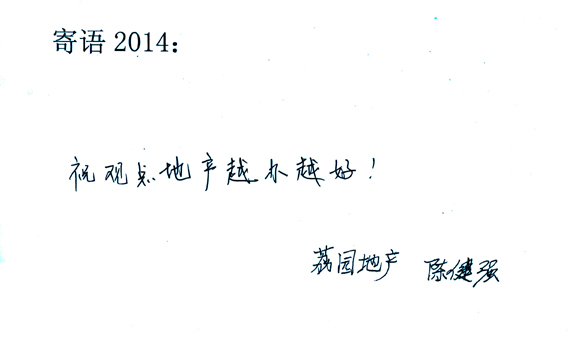 寄语 2014：
祝观点地产越办越好！
荔园地产 陈健强